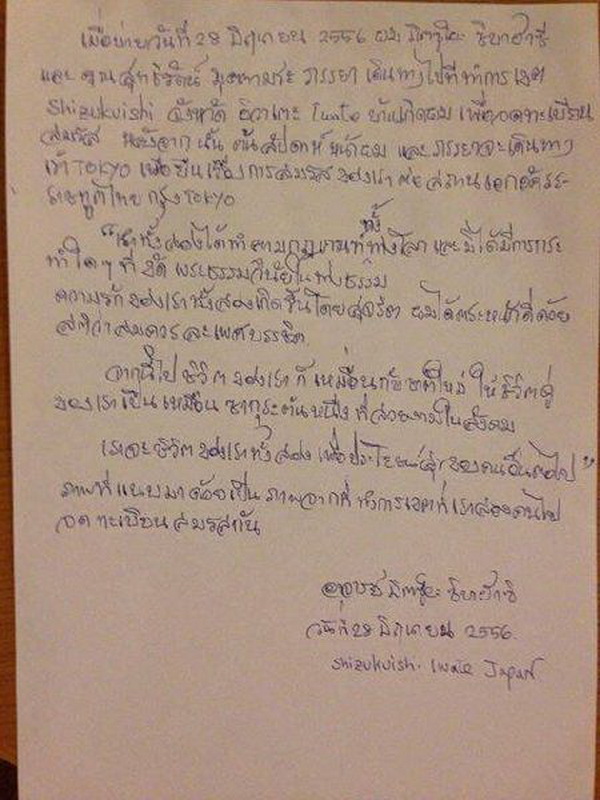 เมื่อบ่ายวันที่ 28 มิถุนายน 2556 ผม มิตซูโอะ ชิบาฮาชิ
และ คุณสุทธิรัตน์ มุตตามระ ภรรยา เดินทางไปที่ทำการเขต
Shizukuishi จังหวัด อิวาเตะ Iwate บ้านเกิดผม เพื่อจดทะเบียน
สมรส หลังจากนั้น ต้นสัปดาห์หน้าผม และภรรยาจะเดินทาง
เข้า TOKYO เพื่อยื่นเรื่องการสมรสของเราต่อสถานเอกอัครร
ราชทูตไทย กรุง TOKYO
"เราทั้งสองได้ทำตามกฎเกณฑ์ทั้งทางโลก และมิได้มีการกระ
ทำใดๆ ที่ขัด พระธรรมวินัยในทางธรรม
ความรักของเราทั้งสองเกิดขึ้นโดยสุจริต ผมได้ตระหนักดีด้วย
สติว่าสมควรละเพศบรรชิต
จากนี้ไป ชีวิตของเรา ก็เหมือนกับชาติใหม่ ให้ชีวิตคู่
ของเราเป็นเหมือน ซากุระต้นหนึ่ง ที่สวยงามในสังคม
เราจะชีวิตของเราทั้งสอง เพื่อประโยชน์สุขของคนอื่นต่อไป"
ภาพที่แนบมาด้วยเป็น ภาพจากที่ทำการเขตที่เราสองคนไป
จดทะเบียนสมรสกัน
มิตซูโอะ ชิบาฮาชิ
วันที่ 28 มิถุนายน 2556
Shizukuishi. Iwate Japan